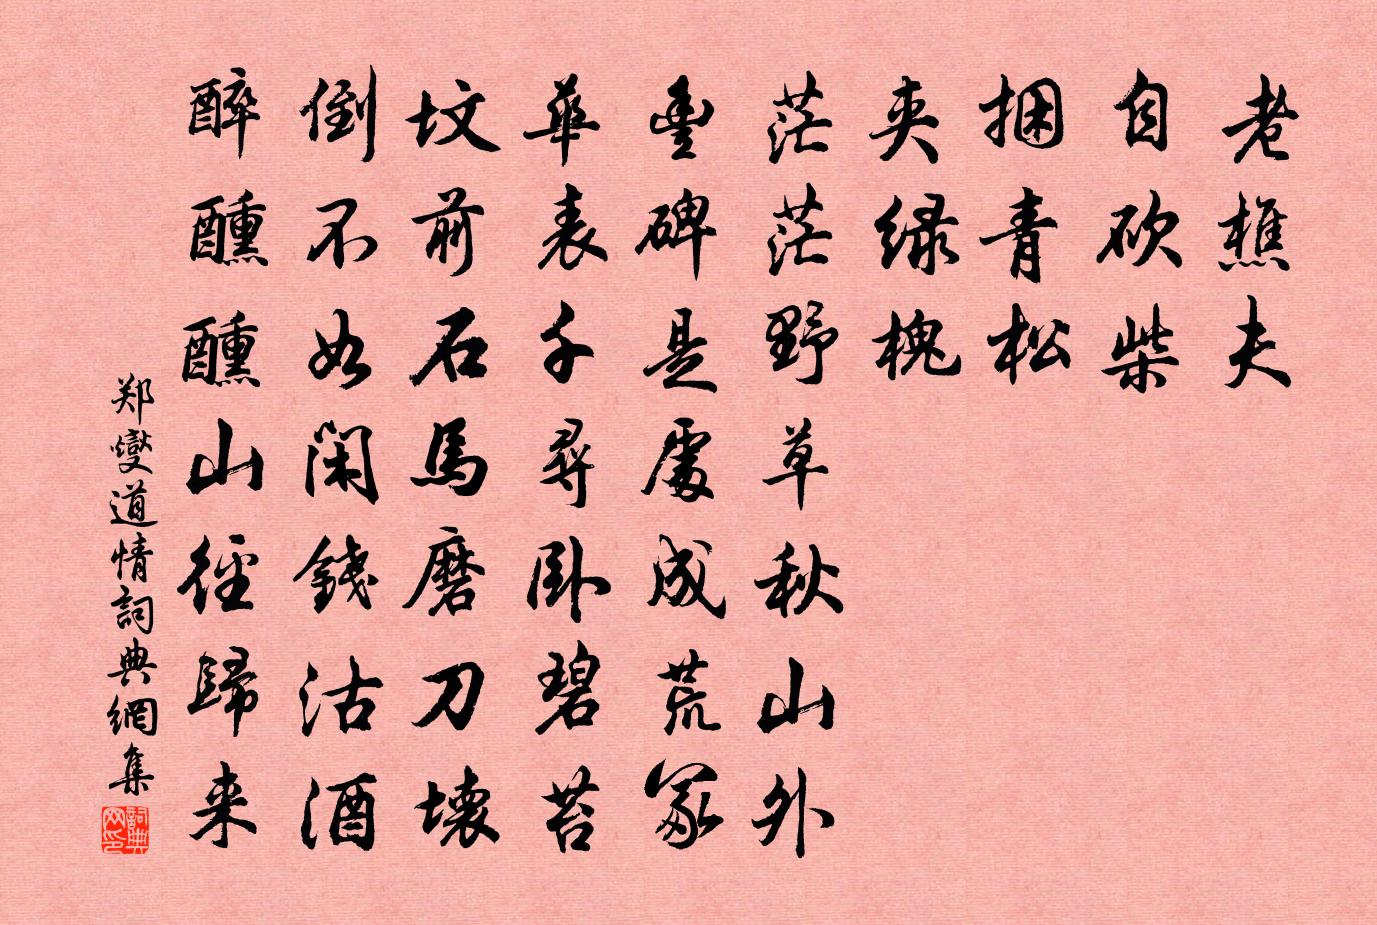 老樵夫
自砍柴
捆青松
夹绿槐
茫茫野草秋山外
豊碑是處成荒冢
華表千尋卧碧苔
坟前石馬磨刀壊
倒不如閑錢沽酒
醉醺醺山徑歸来
郑燮道情詞典網集
詞典网印